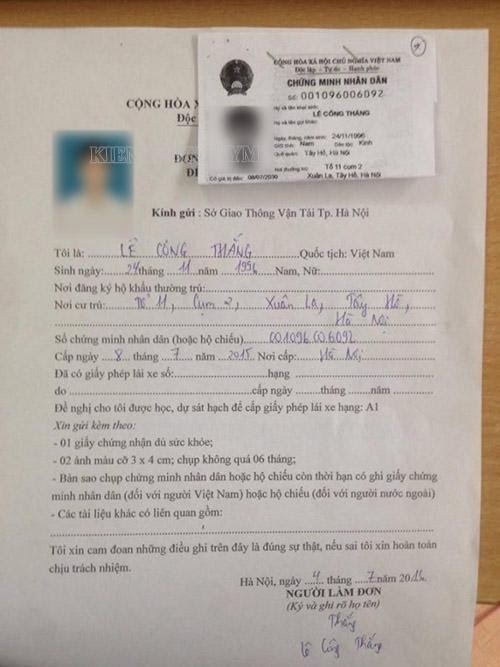 CỘNG HÒA XÃ HỘI CHỦ NGHĨA VIỆT NAM
Độc lập - Tự do - Hạnh phúc
CHỨNG MINH NHÂN DÂN
Số: 001096006092
Họ và tên khai sinh:
LÊ CÔNG THẮNG
Họ và tên gọi khác:
Ngày, tháng, năm sinh: 24/11/1996
Giới tính: Nam Dân tộc: Kinh
Quê quán: Tây Hồ, Hà Nội
Nơi thường trú: Tổ 11 cụm 2
Có giá trị đến: 08/07/2030 Xuân La, Tây Hồ, Hà Nội
CỘNG HÒA X
Độc
KIEN YM
ĐƠN
Kính gửi : Sở Giao Thông Vận Tải Tp. Hà Nội
Tôi là: LÊ CÔNG THẮNG Quốc tịch: Việt Nam
Sinh ngày: 24 tháng 11 năm 1996 Nam, Nữ:
Nơi đăng ký hộ khẩu thường trú:
Nơi cư trú: Tổ 11, Cụm 2, Xuân La, Tây Hồ,
Hà Nội
Số chứng minh nhân dân (hoặc hộ chiếu) 001096006092
Cấp ngày 8 tháng 7 năm 2015 Nơi cấp: Hà Nội
Đã có giấy phép lái xe số: hạng
do cấp ngày tháng năm
Đề nghị cho tôi được học, dự sát hạch để cấp giấy phép lái xe hạng: A1
Xin gửi kèm theo:
- 01 giấy chứng nhận đủ sức khỏe;
- 02 ảnh màu cỡ 3 x 4 cm; chụp không quá 06 tháng;
- Bản sao chụp chứng minh nhân dân hoặc hộ chiếu còn thời hạn có ghi giấy chứng
minh nhân dân (đối với người Việt Nam) hoặc hộ chiếu (đối với người nước ngoài)
- Các tài liệu khác có liên quan gồm:
Tôi xin cam đoan những điều ghi trên đây là đúng sự thật, nếu sai tôi xin hoàn toàn
chịu trách nhiệm.
Hà Nội, ngày 4 tháng 7 năm 2016
NGƯỜI LÀM ĐƠN
(Ký và ghi rõ họ tên)
Thắng
Lê Công Thắng